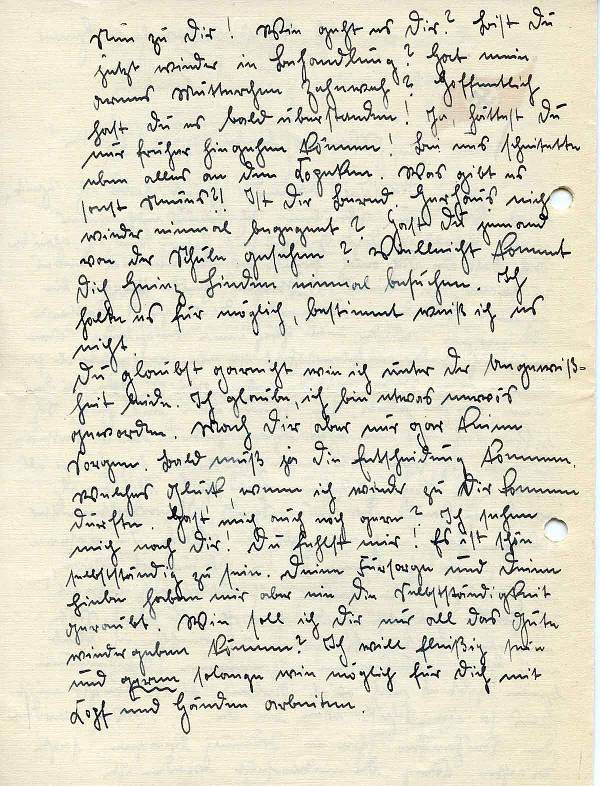 Nun zu Dir! Wie geht es Dir? Bist Du
jetzt wieder in Behandlung? Hat mein
armes Mütterchen Zahnweh? Hoffentlich
hast Du es bald überstanden! Ja, hättest Du
nur früher hingehen können! Bei uns scheitette
eben alles an den Kosten. Was gibt es
sonst Neues?! Ist Dir Bernd. Gerhaus nie
wieder einmal begegnet? Hast Du jemand
von der Schule gesehen? Vielleicht kommt
Dich Heinz Linden einmal besuchen. Ich
halte es für möglich, bestimmt weiß ich es
nicht.
Du glaubst garnicht wie ich unter der Ungewiß=
heit leide. Ich glaube, ich bin etwas nervös
geworden. Mach Dir aber nur gar keine
Sorgen. Bald muß ja die Entscheidung kommen.
Welches Glück, wenn ich wieder zu Dir kommen
dürfte. Hast mich auch noch gern? Ich sehne
mich nach Dir! Du fehlst mir! Es ist schön
selbstständig zu sein. Deine Fürsorge und Deine
Liebe haben mir aber nie die Selbstständigkeit
geraubt. Wie soll ich Dir nur all das Gute
wiedergeben können? Ich will fleißig sein
und gerne solange wie möglich für Dich mit
Kopf und Händen arbeiten.